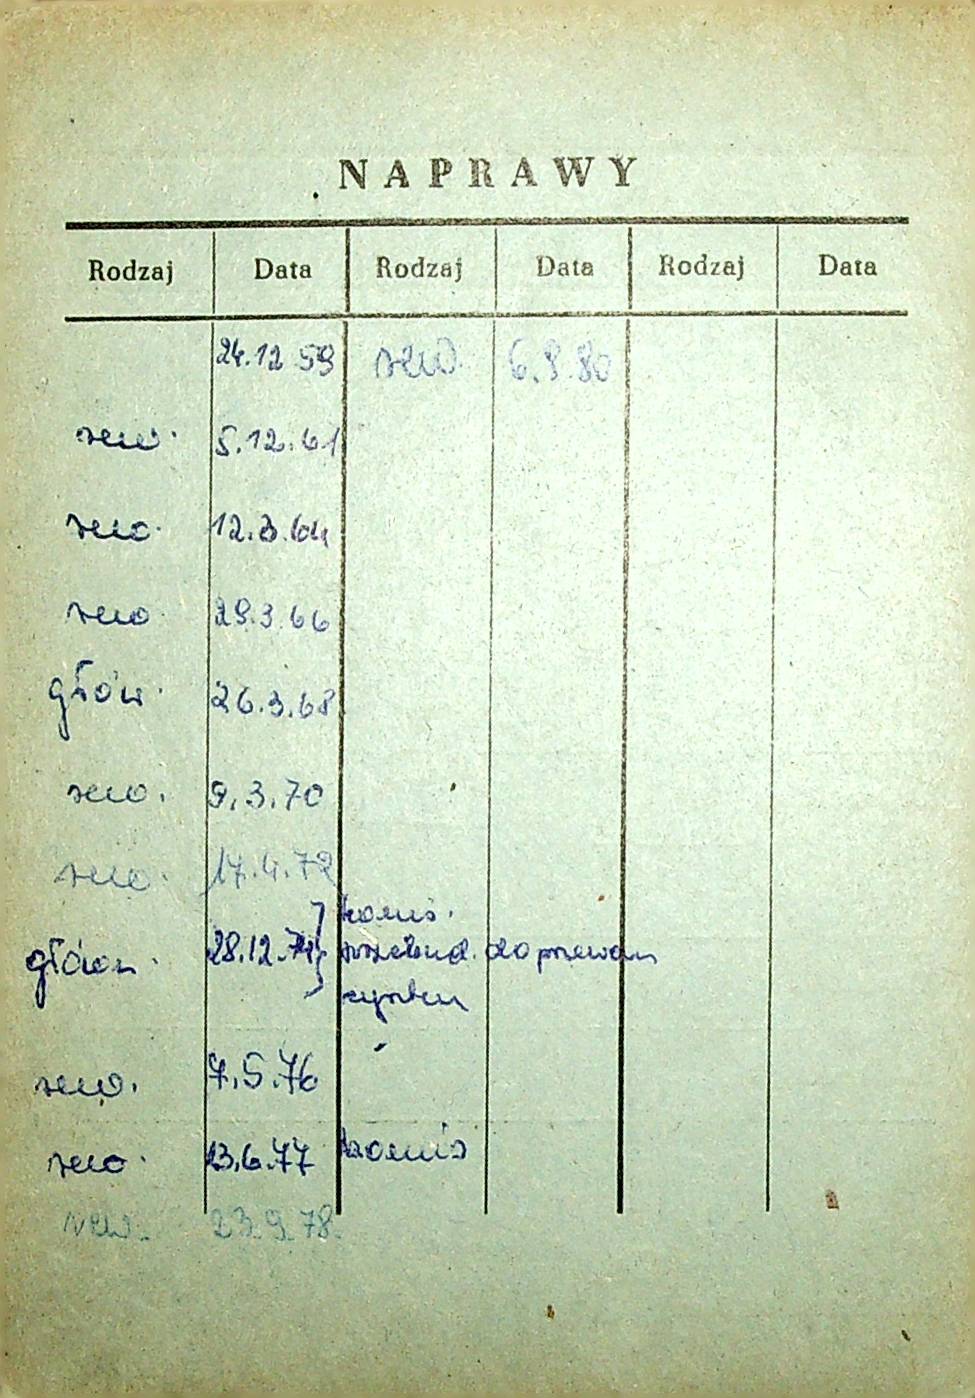 NAPRAWY
Rodzaj Data Rodzaj Data Rodzaj Data
24.12 59 rew. 6.8.80
rew. 5.12.61
rew. 12.3.64
rew. 29.3.66
głów. 26.3.68
rew. 9.3.70
rew. 17.4.72
komis.
główn. 28.12.74 } do przewan
7.5.76
rew.
rew. 13.6.77 komis
rew. 23.9.78.